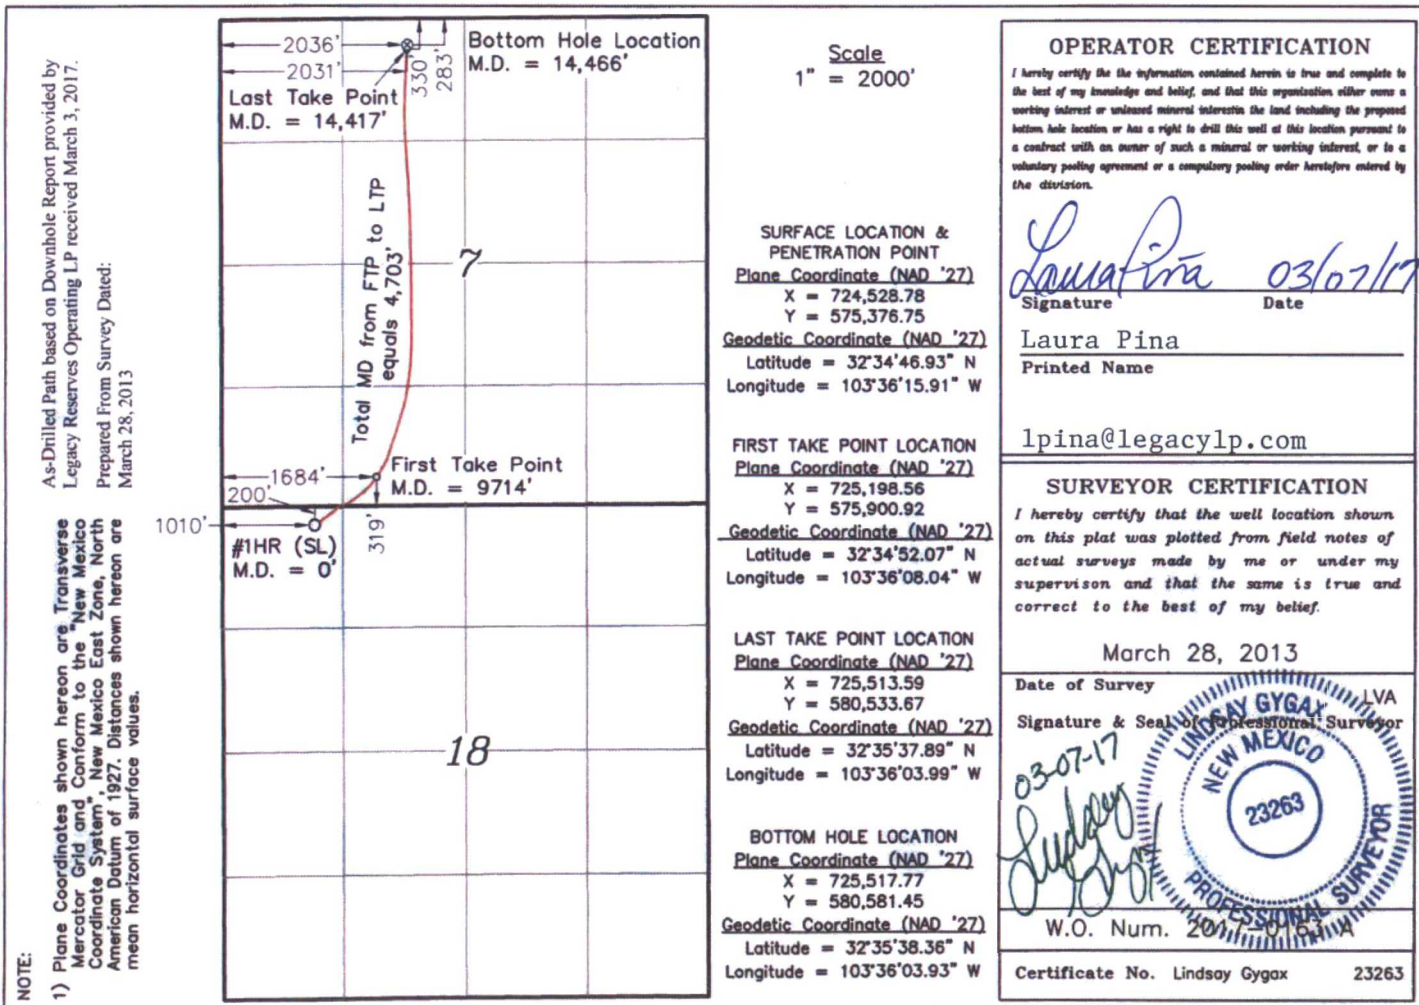 As-Drilled Path based on Downhole Report provided by
Legacy Reserves Operating LP received March 3, 2017.
Prepared From Survey Dated:
March 28, 2013
NOTE:
1) Plane Coordinates shown hereon are Transverse
Mercator Grid and Conform to the "New Mexico
Coordinate System", New Mexico East Zone, North
American Datum of 1927. Distances shown hereon are
mean horizontal surface values.
2036'
2031'
330'
283'
Bottom Hole Location
M.D. = 14,466'
Last Take Point
M.D. = 14,417'
Total MD from FTP to LTP
equals 4,703'
7
1684'
First Take Point
M.D. = 9714'
200'
1010'
319'
#1HR (SL)
M.D. = 0'
18
Scale
1" = 2000'
SURFACE LOCATION &
PENETRATION POINT
Plane Coordinate (NAD '27)
X = 724,528.78
Y = 575,376.75
Geodetic Coordinate (NAD '27)
Latitude = 32°34'46.93" N
Longitude = 103°36'15.91" W
FIRST TAKE POINT LOCATION
Plane Coordinate (NAD '27)
X = 725,198.56
Y = 575,900.92
Geodetic Coordinate (NAD '27)
Latitude = 32°34'52.07" N
Longitude = 103°36'08.04" W
LAST TAKE POINT LOCATION
Plane Coordinate (NAD '27)
X = 725,513.59
Y = 580,533.67
Geodetic Coordinate (NAD '27)
Latitude = 32°35'37.89" N
Longitude = 103°36'03.99" W
BOTTOM HOLE LOCATION
Plane Coordinate (NAD '27)
X = 725,517.77
Y = 580,581.45
Geodetic Coordinate (NAD '27)
Latitude = 32°35'38.36" N
Longitude = 103°36'03.93" W
OPERATOR CERTIFICATION
I hereby certify the the information contained herein is true and complete to
the best of my knowledge and belief, and that this organization either owns a
working interest or unleased mineral interestin the land including the proposed
bottom hole location or has a right to drill this well at this location pursuant to
a contract with an owner of such a mineral or working interest, or to a
voluntary pooling agreement or a compulsory pooling order heretofore entered by
the division.
Laura Piña 03/07/17
Signature Date
Laura Pina
Printed Name
lpina@legacylp.com
SURVEYOR CERTIFICATION
I hereby certify that the well location shown
on this plat was plotted from field notes of
actual surveys made by me or under my
supervison and that the same is true and
correct to the best of my belief.
March 28, 2013
Date of Survey LVA
Signature & Seal of Professional Surveyor
03-07-17
Lindsay Gygax
LINDSAY GYGAX
NEW MEXICO
23263
PROFESSIONAL SURVEYOR
W.O. Num. 2017-0163 A
Certificate No. Lindsay Gygax 23263